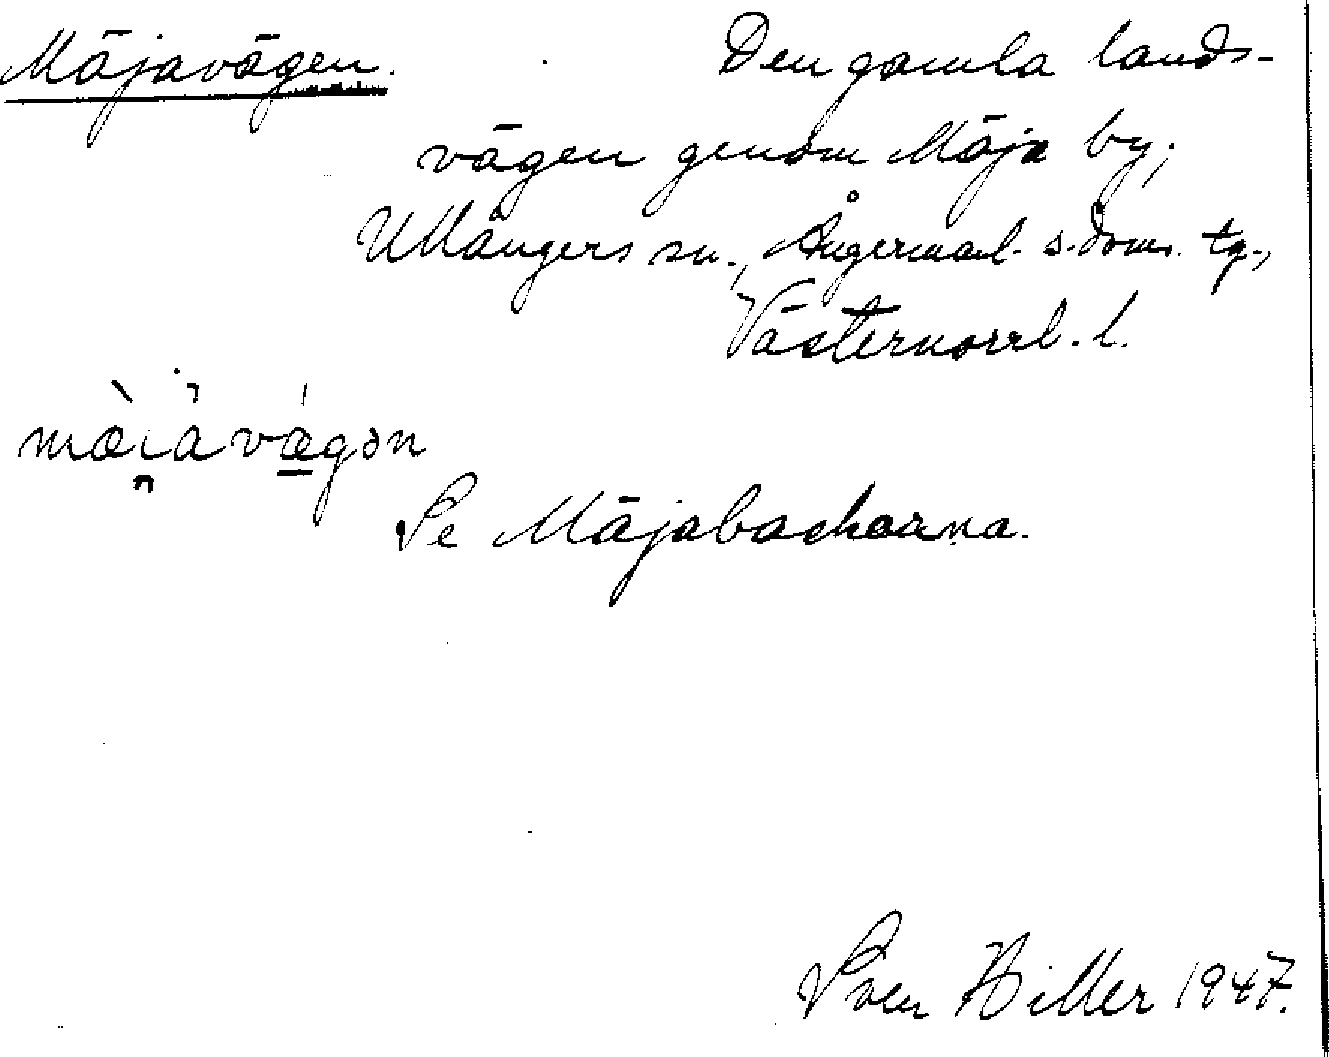 Mäjavägen. Den gamla lands-
vägen genom Mäja by;
Ullångers sn., Ångermanl. s. doms. tg.,
Västernorrl. l.
Se Mäjabackarna.
Sven Hiller 1947.